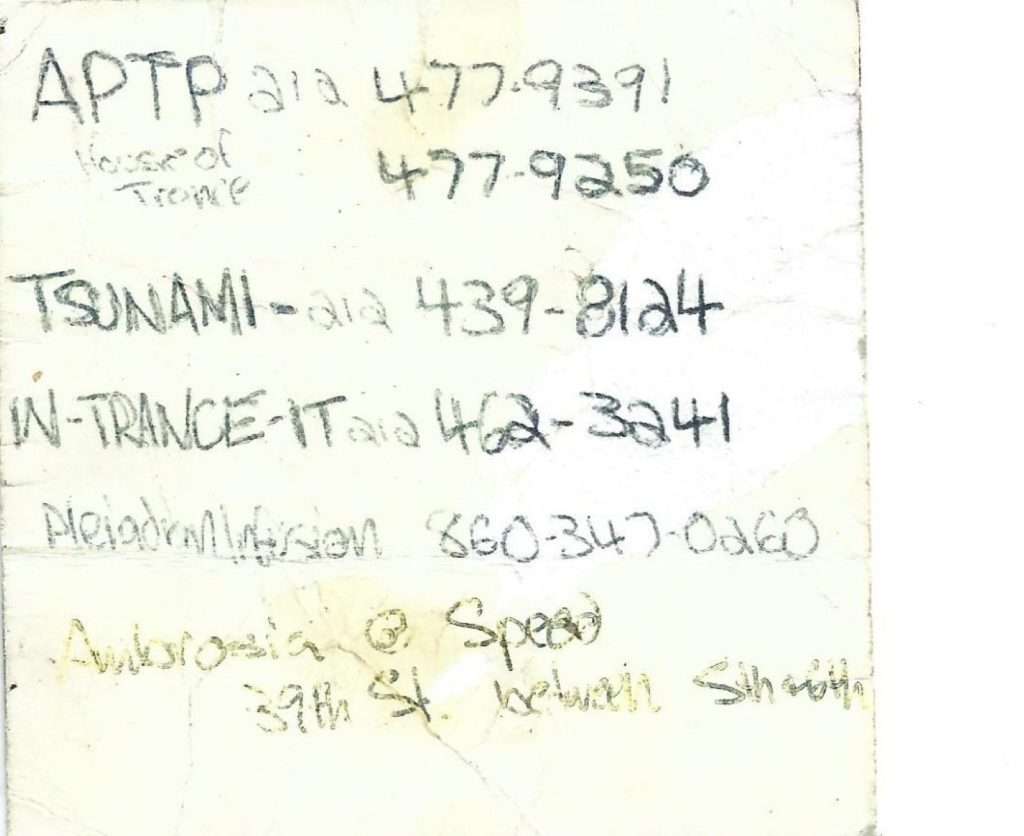 APTP 212 477-9391
House of 477-9250
Trance
TSUNAMI - 212 439-8124
IN-TRANCE-IT 212 462-3241
Pleiadian Infusion 860-347-0260
Ambrosia @ Speed
39th St. between 5th & 6th